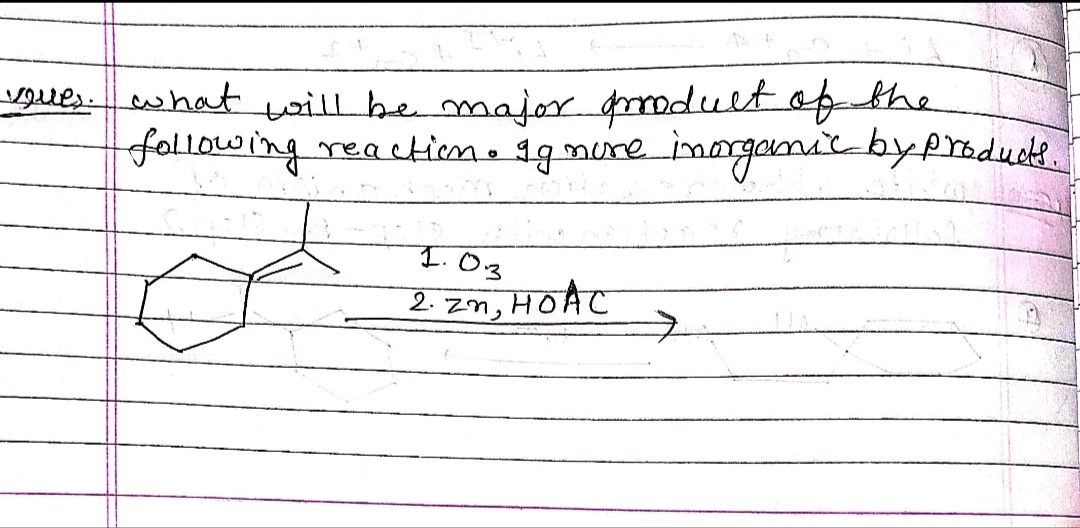 Ques. what will be major product of the
following reaction. Ignore inorganic by products.
1. O3
2. Zn, HOAC